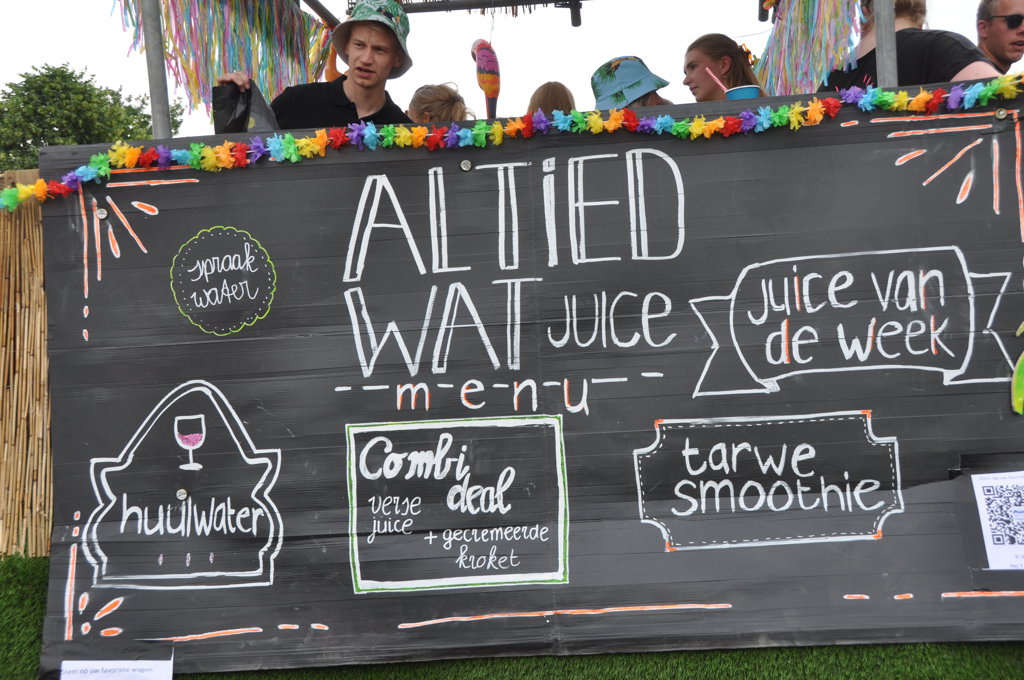 ALTIED
WAT JUICE
m-e-n-u
spraak
water
juice van
de week
huulwater
Combi
deal
verse
juice
+ gecremeerde
kroket
tarwe
smoothie
Stem op uw favoriete wagen: